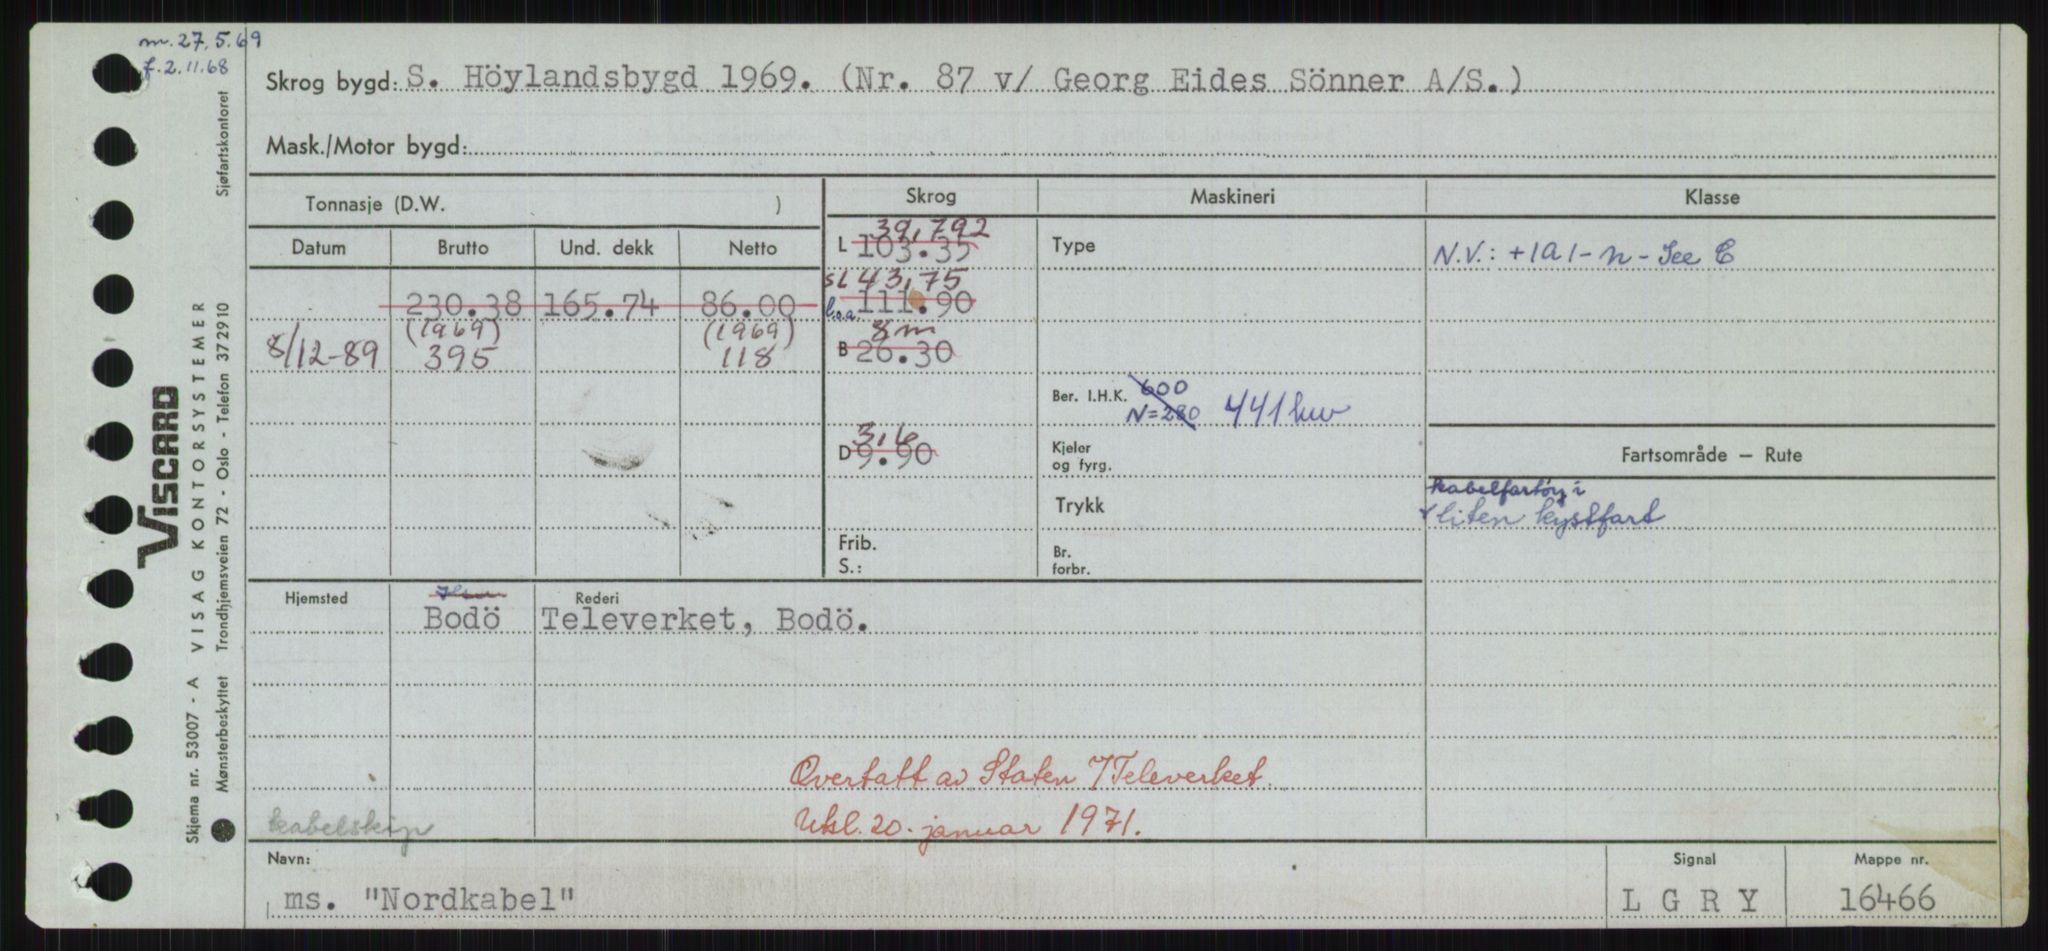 m. 27.5.69
f. 2.11.68
Skrog bygd: S. Höylandsbygd 1969. (Nr. 87 v/ Georg Eides Sönner A/S.)
Mask./Motor bygd:
Tonnasje (D.W. )
Skrog Maskineri Klasse
Datum Brutto Und. dekk Netto
39,792
L 103.35
Type
N.V.: +1A1-n-See C
SL 43,75
230.38 165.74 86.00
l.o.a. 111.90
(1969) (1969)
8m
8/12-89 395 118
B 26.30
Ber. I.H.K. 600
N=280 441 kw
3,6
D 9.90
Kjeler
og fyrg.
Fartsområde — Rute
kabelfartøy i
liten kystfart
Trykk
Frib.
S.:
Br.
forbr.
Hjemsted
Rederi
Bodö Televerket, Bodö.
Overtatt av Staten v/Televerket.
Utsl. 20. januar 1971.
kabelskip
Navn: Signal Mappe nr.
ms. "Nordkabel" L G R Y 16466
Skjema nr. 53007 - A VISAG KONTORSYSTEMER
Mønsterbeskyttet Trondhjemsveien 72 - Oslo - Telefon 372910 Sjøfartskontoret
VISCARD